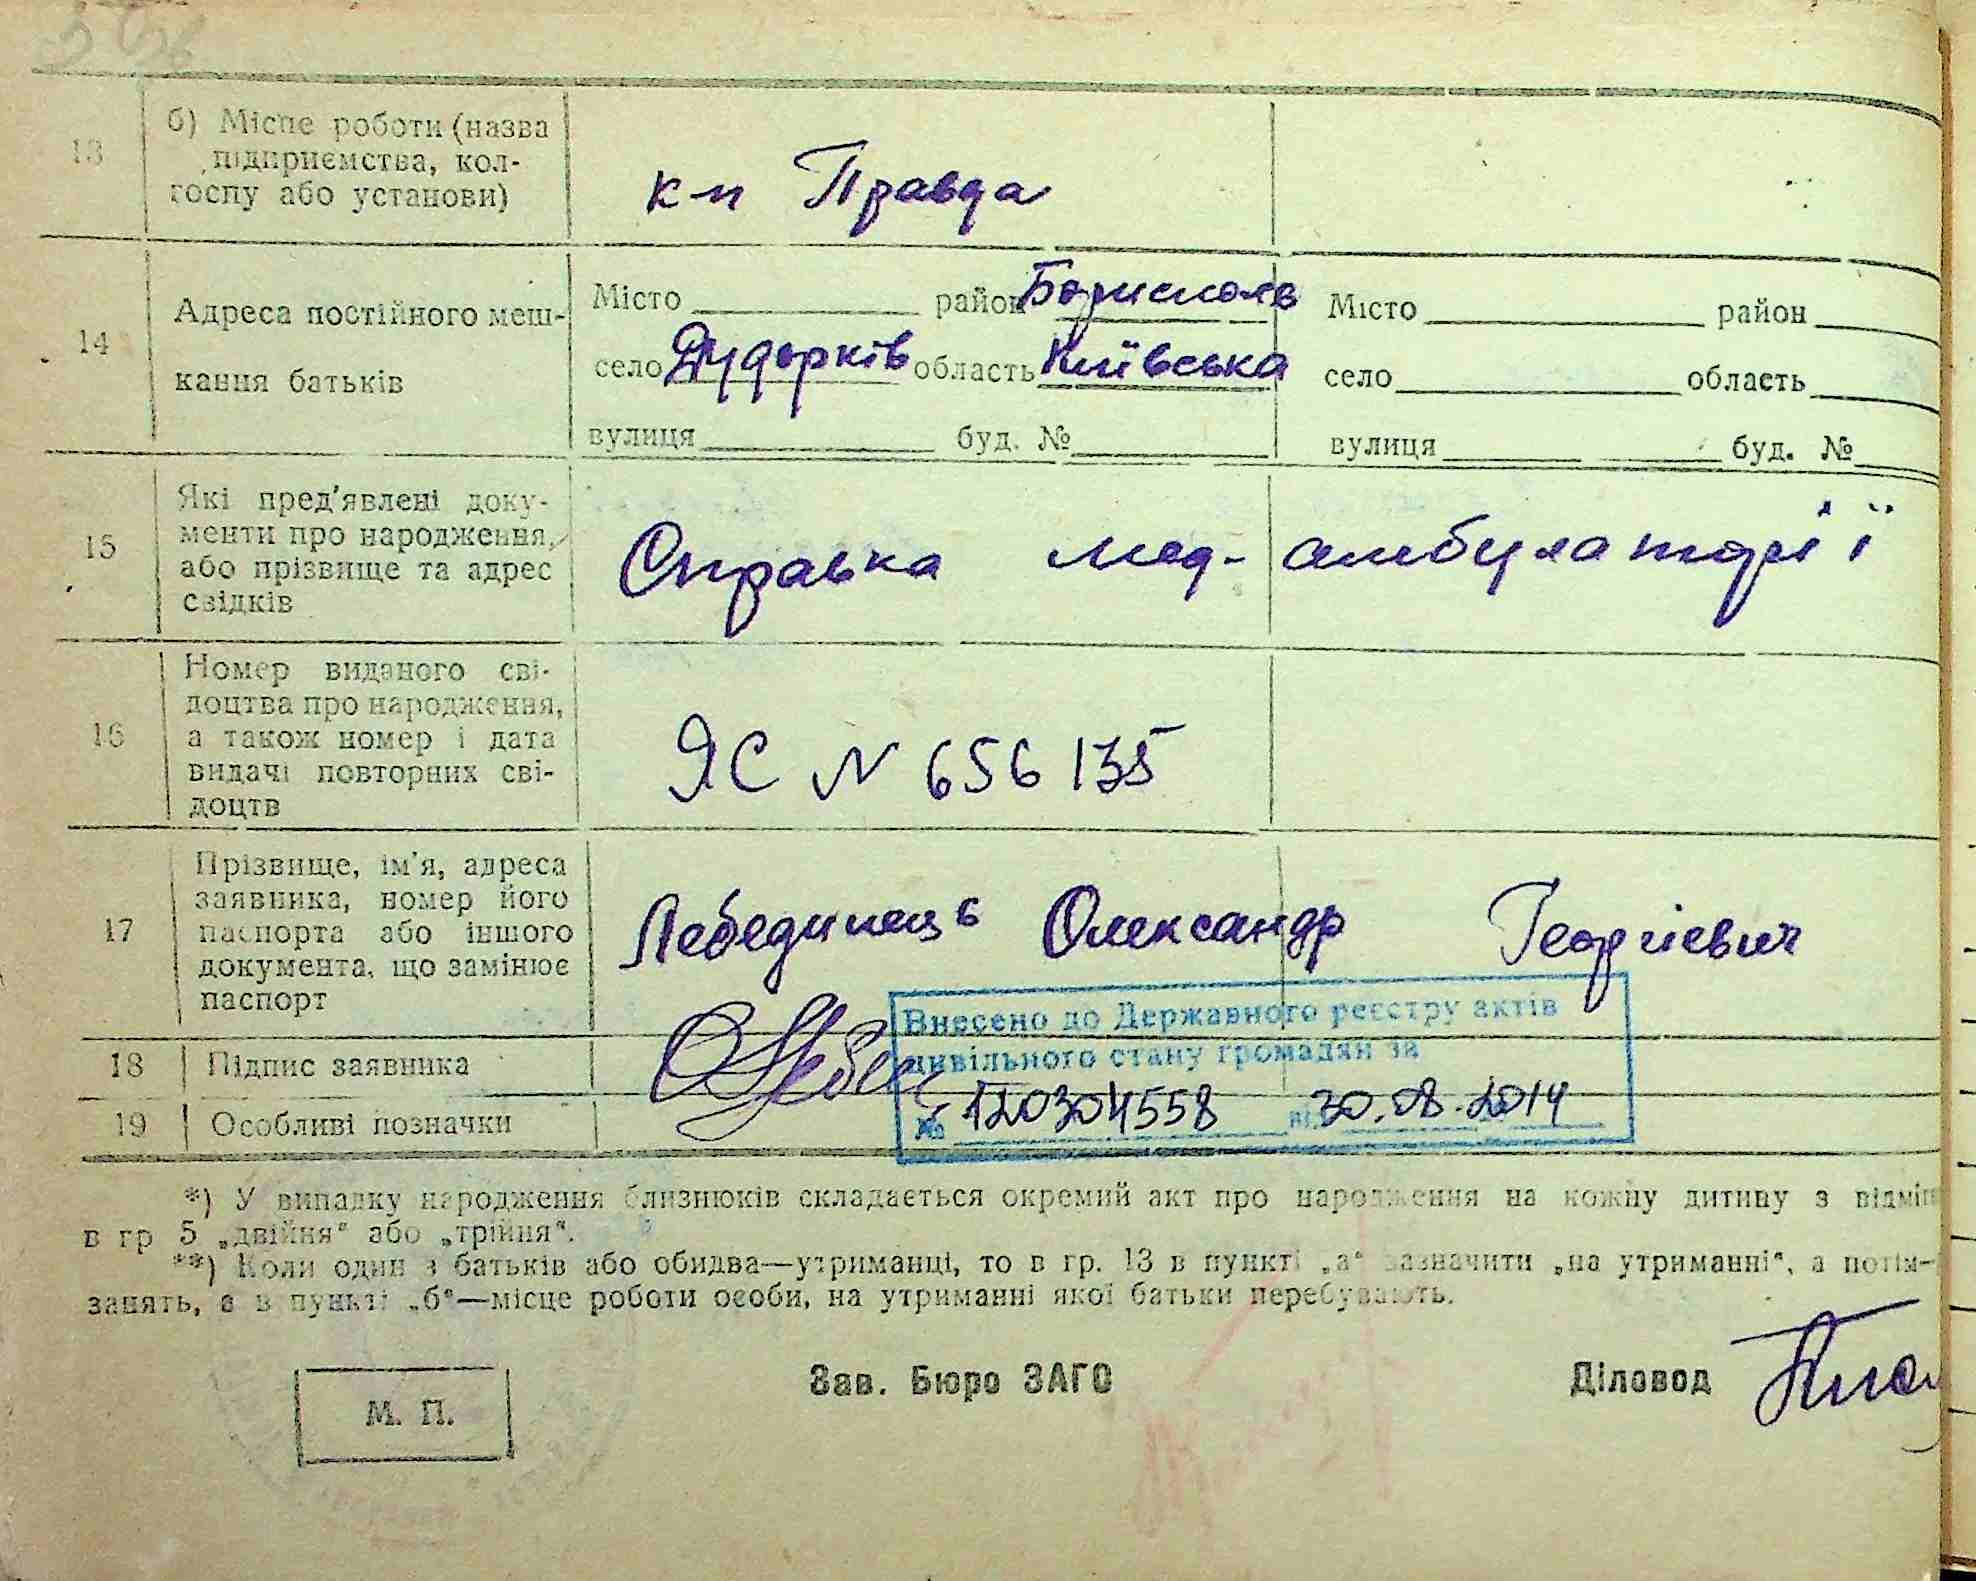 13
б) Місце роботи (назва
підприємства, кол-
госпу або установи)
к-п Правда
14
Адреса постійного меш-
кання батьків
Місто район Бориспольс
село Дударків область Київська
вулиця буд. №
Місто район
село область
вулиця буд. №
15
Які пред'явлені доку-
менти про народження,
або прізвище та адрес
свідків
Справка мед- амбулаторії
16
Номер виданого сві-
доцтва про народження,
а також номер і дата
видачі повторних сві-
доцтв
ЯС N 656135
17
Прізвище, ім'я, адреса
заявника, номер його
паспорта або іншого
документа, що замінює
паспорт
Лебединець Олександр Георгієвич
18 Підпис заявника
19 Особливі позначки
Внесено до Державного реєстру актів
цивільного стану громадян за
№ 120304558 від 30.08.2014
*) У випадку народження близнюків складається окремий акт про народження на кожну дитину з відмін
в гр 5 „двійня“ або „трійня“.
**) Коли один з батьків або обидва—утриманці, то в гр. 13 в пункті „а“ зазначити „на утриманні“, а потім—
занять, а в пункті „б“—місце роботи особи, на утриманні якої батьки перебувають.
М. П.
Зав. Бюро ЗАГС
Діловод